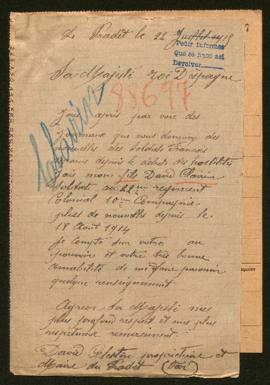 Le Pradet le 22 Juillet 1915
Pedir Informes
Que se hace asi
Devolver
Sa Majesté roi Despagne
88697
J'ai apris par voie des
journaux que vous donniez des
nouvelles des Soldats Francais
depuis le debut des hostilités
mon fils David
Soldat au 22me regiment
Colonial 10me Compagnie
plus de nouvelle depuis le
18 Août 1914
Je compte sur votre au
pouvoir et votre très bonne
amabilité de me faire parvenir
quelque renseignement
Agreer Sa Majesté mes
plus profond respect et mes plus
respectueux remerciement
David proprietaire et
Maire du Pradet (Var)